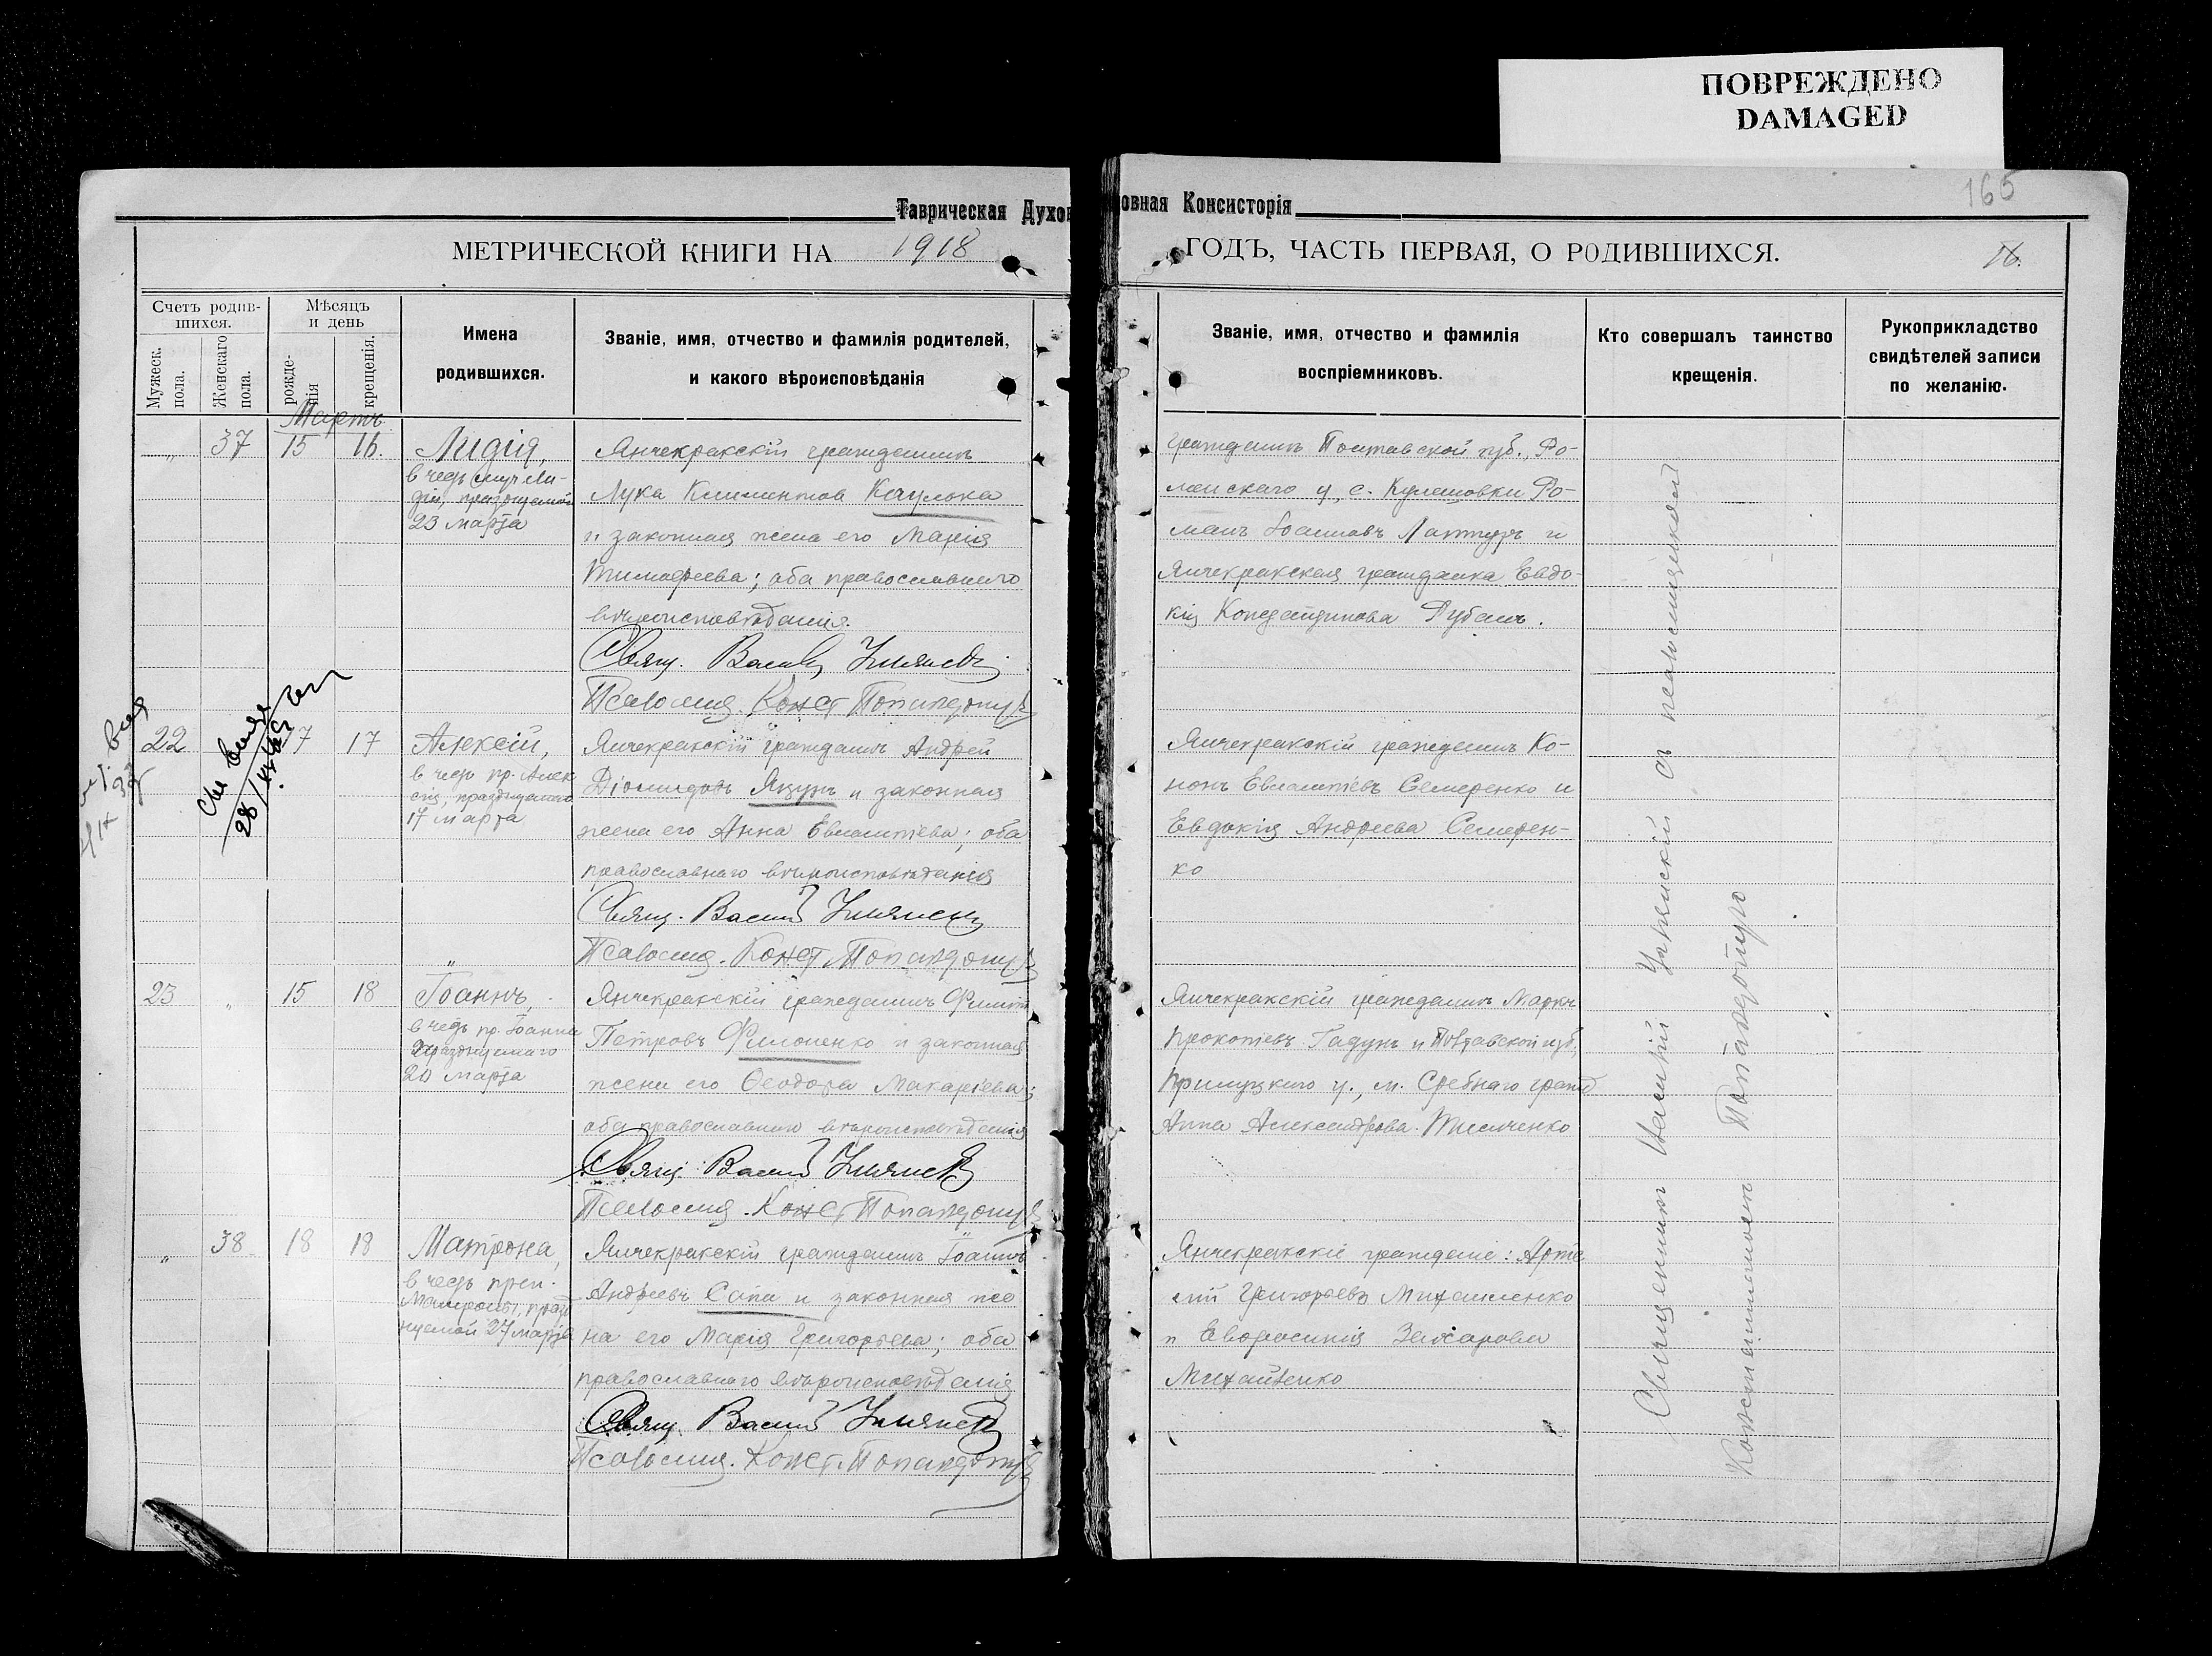 ПОВРЕЖДЕНО
DAMAGED
165
Таврическая Духовная Консисторія
МЕТРИЧЕСКОЙ КНИГИ НА 1918 ГОДЪ, ЧАСТЬ ПЕРВАЯ, О РОДИВШИХСЯ.
16.
Счетъ родив-
шихся.
Мужеск.
пола.
Женскаго
пола.
Мѣсяцъ
и день
рожде-
нія
крещенія.
Имена
родившихся.
Званіе, имя, отчество и фамилія родителей,
и какого вѣроисповѣданія
Званіе, имя, отчество и фамилія
воспріемниковъ.
Кто совершалъ таинство
крещенія.
Рукоприкладство
свидѣтелей записи
по желанію.
Мартъ
" 37 15 16.
Лидія,
в честь муч Ли-
діи, празднуемой
23 марта
Янчекракскій гражданинъ
Лука Климентов
и законная жена его Марія
Тимофеева; оба православнаго
вѣроисповѣданія.
Свящ. Василій
Псаломщ. Конст Попандопуло
гражданинъ Полтавской губ., Ро-
менскаго у, с. Кулешовки Ро-
манъ Іоанновъ и
Янчекракская гражданка Евдо-
кія Константинова Рубанъ.
22 17 17
Алексій,
в честь пр. Алек
сія, празднуемаго
17 марта
Янчекракскій гражданинъ Андрей
Діомидовъ Яцунъ и законная
жена его Анна Евлампіева; оба
православнаго вѣроисповѣданія
Свящ. Василій
Псаломщ. Конст. Попандопуло
Янчекракскій гражданинъ Ко-
нонъ Евлампіевъ Семеренко и
Евдокія Андреева Семерен-
ко
28/
23 " 15 18
Іоаннъ,
в честь пр. Іоанна
празднуемаго
20 марта
Янчекракскій гражданинъ Филиппъ
Петровъ Филоненко и законная
жена его Ѳеодора Макаріева;
оба православнаго вѣроисповѣданія
Свящ. Василій
Псаломщ. Конст Попандопуло
Янчекракскій гражданинъ Маркъ
Прокопіевъ Гадунъ и Полтавской губ,
Прилуцкаго у., м. Сребнаго гражд
Анна Александрова Тимченко
" 38 18 18
Матрона,
в честь преп.
Матроны, празд
нуемой 27 марта
Янчекракскій гражданинъ Іоаннъ
Андреевъ Сапа и законная же
на его Марія Григорьева; оба
православнаго вѣроисповѣданія
Свящ. Василій
Псаломщ. Конст. Попандопуло
Янчекракскіе граждане: Арте
мій Григорьевъ Михайленко
и Евфросинія Захарова
Михайленко
Священникъ Василій съ псаломщикомъ
Константиномъ Попандопуло